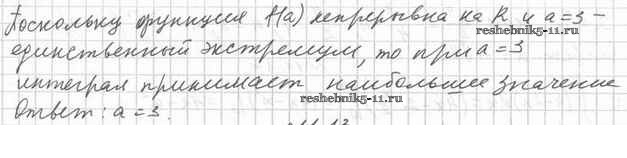 Поскольку функция f(a) непрерывна на R и a=3 –
единственный экстремум, то при a=3
интеграл принимает наибольшее значение
Ответ: a=3.
reshebnik5-11.ru
reshebnik5-11.ru